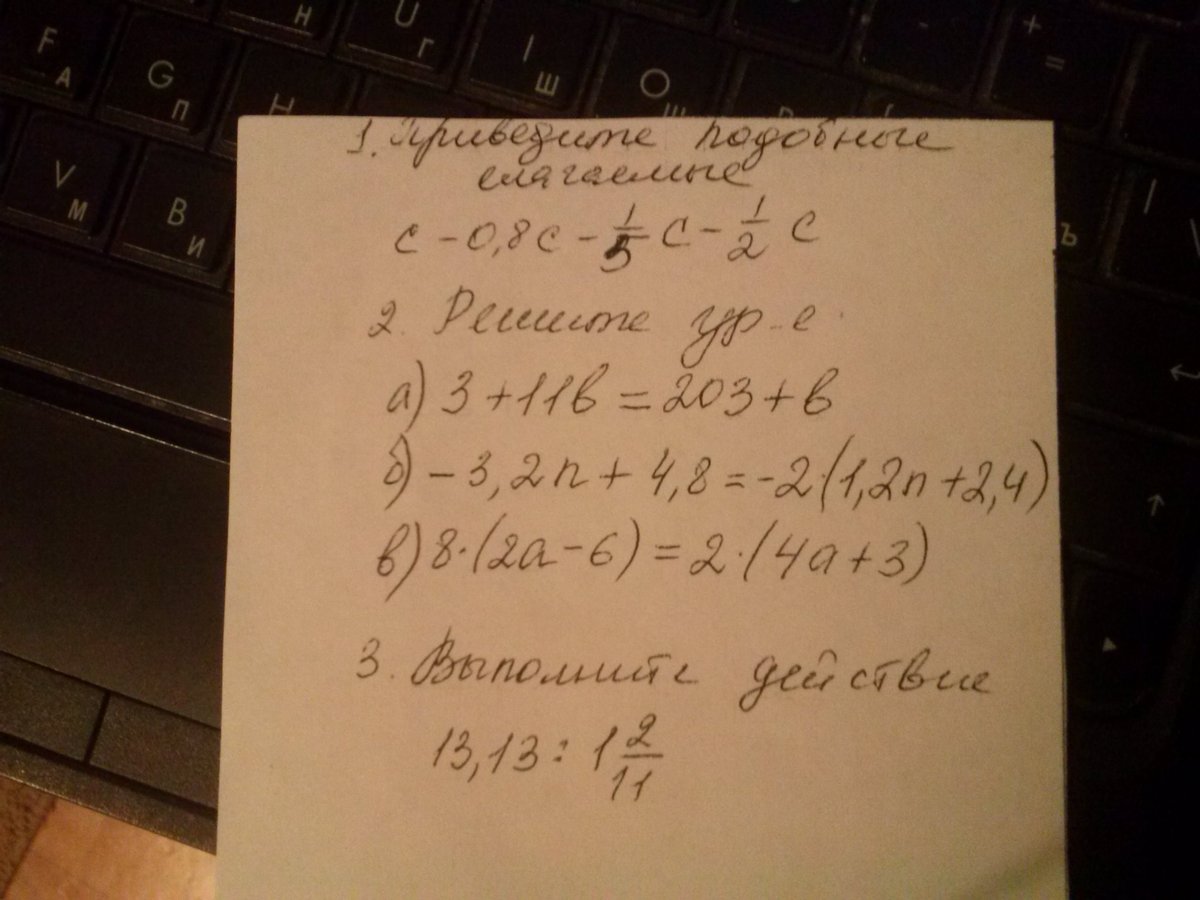 F А
G П
Н
U Г
I Ш
O Щ
+ =
Ъ
V М
B И
1. Приведите подобные
слагаемые
c - 0,8c - 1/5 c - 1/2 c
2. Решите ур-е
а) 3 + 11в = 203 + в
б) - 3,2n + 4,8 = -2·(1,2n + 2,4)
в) 8·(2a - 6) = 2·(4a + 3)
3. Выполните действие
13,13 : 1 2/11